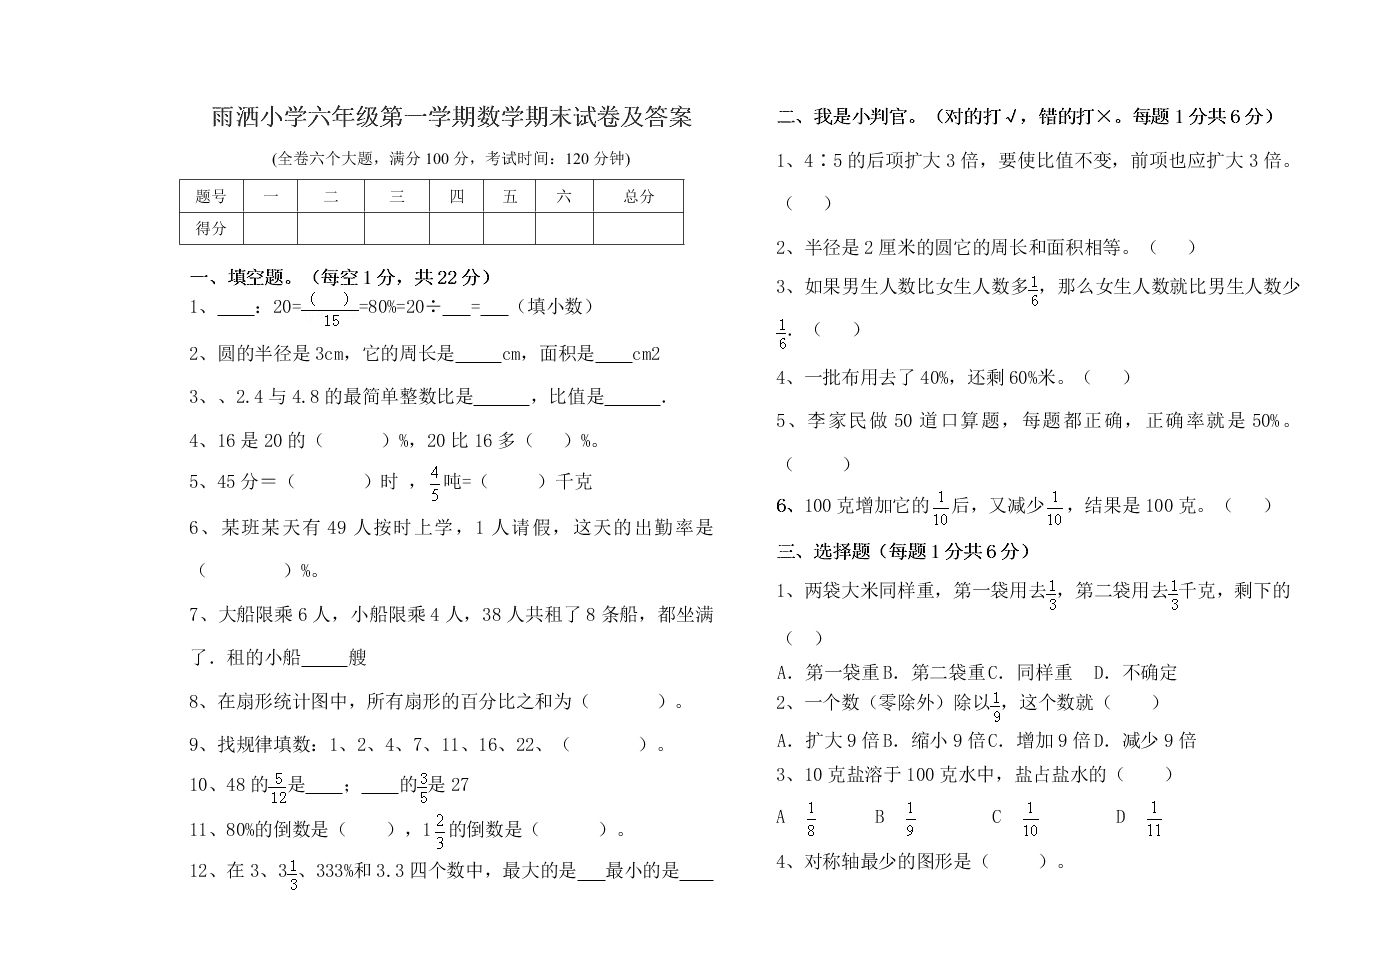 雨洒小学六年级第一学期数学期末试卷及答案
(全卷六个大题，满分 100 分，考试时间：120 分钟)
题号 一 二 三 四 五 六 总分
得分
一、填空题。（每空 1 分，共 22 分）
1、____：20=（ ）/15=80%=20÷___=___（填小数）
2、圆的半径是 3cm，它的周长是_____cm，面积是____cm2
3、、2.4 与 4.8 的最简单整数比是______，比值是______．
4、16 是 20 的（ ）%，20 比 16 多（ ）%。
5、45 分＝（ ）时 ，4/5 吨=（ ）千克
6、某班某天有 49 人按时上学，1 人请假，这天的出勤率是
（ ）%。
7、大船限乘 6 人，小船限乘 4 人，38 人共租了 8 条船，都坐满
了．租的小船_____艘
8、在扇形统计图中，所有扇形的百分比之和为（ ）。
9、找规律填数：1、2、4、7、11、16、22、（ ）。
10、48 的5/12是____；____的3/5是 27
11、80%的倒数是（ ）,1 2/3 的倒数是（ ）。
12、在 3、3 1/3、333%和 3.3 四个数中，最大的是___最小的是____
二、我是小判官。（对的打√，错的打×。每题 1 分共 6 分）
1、4∶5 的后项扩大 3 倍，要使比值不变，前项也应扩大 3 倍。
（ ）
2、半径是 2 厘米的圆它的周长和面积相等。（ ）
3、如果男生人数比女生人数多1/6，那么女生人数就比男生人数少
1/6．（ ）
4、一批布用去了 40%，还剩 60%米。（ ）
5、李家民做 50 道口算题，每题都正确，正确率就是 50%。
（ ）
6、100 克增加它的 1/10 后，又减少 1/10，结果是 100 克。（ ）
三、选择题（每题 1 分共 6 分）
1、两袋大米同样重，第一袋用去1/3，第二袋用去1/3千克，剩下的
（ ）
A．第一袋重 B．第二袋重 C．同样重 D．不确定
2、一个数（零除外）除以1/9，这个数就（ ）
A．扩大 9 倍 B．缩小 9 倍 C．增加 9 倍 D．减少 9 倍
3、10 克盐溶于 100 克水中，盐占盐水的（ ）
A 1/8 B 1/9 C 1/10 D 1/11
4、对称轴最少的图形是（ ）。